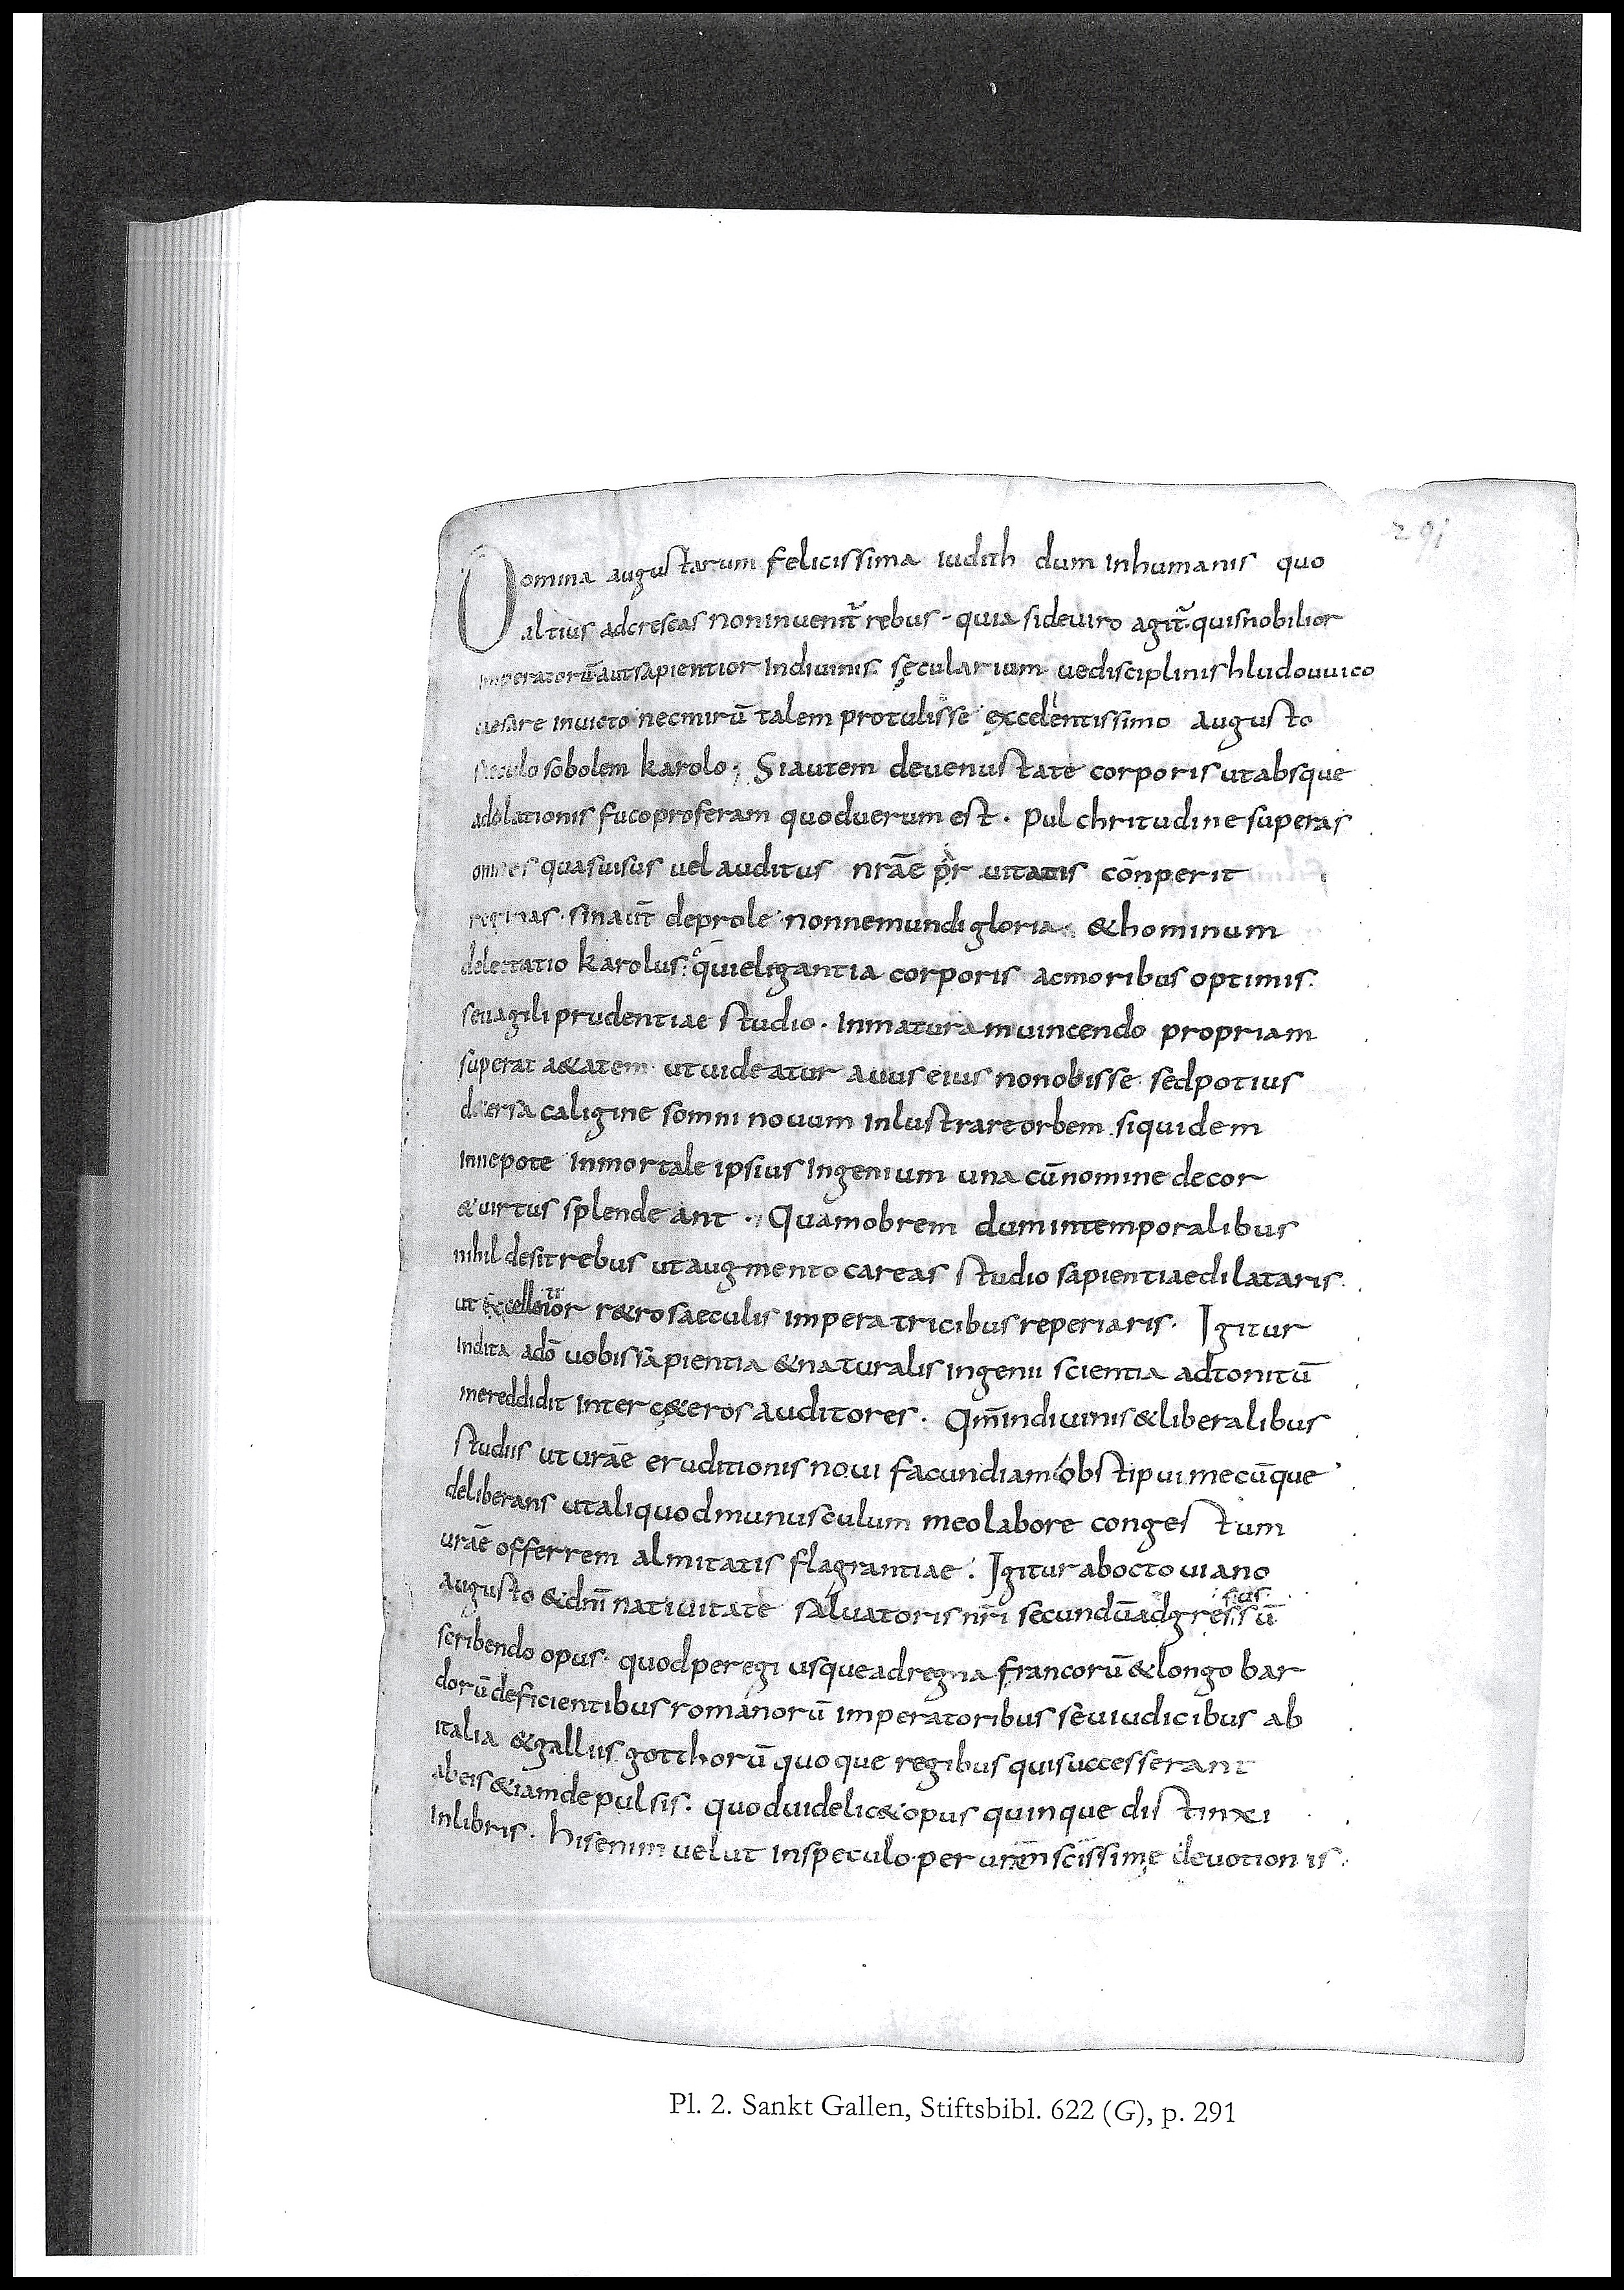 291
Domina augustarum felicissima iudith dum inhumanis quo
altius adcrescas noninvenit̃ rebus · quia sideuiro agit̃ quisnobilior
imperatorū autsapientior Indiuinis sęcularium uedisciplinis hludouuico
cesare inuicto necmirū talem protulisse excellentissimo augusto
seculo sobolem karolo ; Siautem deuenustate corporis utabsque
adolationis fucoproferam quoduerum est . Pulchritudine superas
omnes quasuisus uel auditus nrāe ꝑr uitatis cōnperit
reginas · sinaut̄ deprole nonnemundi gloria · & hominum
delectatio karolus · q̊uieligantia corporis acmoribus optimis .
seuagili prudentiae studio . Inmaturam uincendo propriam
superat a&atem utuideatur auus eius nonobisse sedpotius
dcersa caligine somni nouum inlustrareorbem siquidem
innepote inmortale ipsius ingenium una cūnomine decor
& uirtus splendeant . Quamobrem dumintemporalibus
nihil desitrebus utaugmento careas studio sapientiaedilataris .
ut excellentior r&rosaeculis imperatricibus reperiaris . Igitur
Indita adō uobis sapientia & naturalis ingenii scientia adtonitū
mereddidit inter cę&eros auditores . Qm̄indiuinis & liberalibus
studiis ut urāe eruditionis noui facundiam obstipui mecūque
deliberans utaliquodmunusculum meolabore congestum
urāe offerrem almitatis flagrantiae . Igitur aboctouiano
augusto & dnī natiuitate saluatoris nr̄i secundūadgres sū
sus
scribendo opus · quodperegi usqueadregna francorū & longobar
dorū deficientibus romanorū imperatoribus seuiudicibus ab
italia & galliis gotthorū quoque regibus quisuccesserant
abeis &iamdepulsis . quoduidelic& opus quinque distinxi
inlibris . hisenim uelut inspeculo per scissime deuotionis .
Pl. 2. Sankt Gallen, Stiftsbibl. 622 (G), p. 291